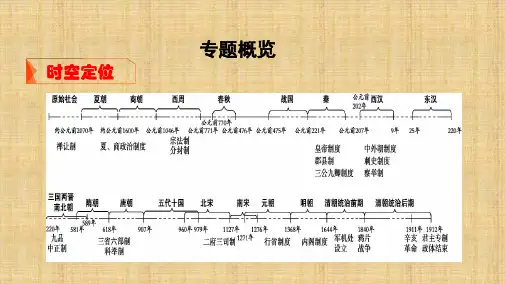 专题概览
时空定位
原始社会 夏朝 商朝 西周 春秋 战国 秦 公元前202年 西汉 东汉
公元前770年
约公元前2070年 约公元前1600年 公元前1046年 公元前771年 公元前476年 公元前475年 公元前221年 公元前207年 9年 25年 220年
禅让制 夏、商政治制度 宗法制 分封制 皇帝制度 郡县制 三公九卿制度 中外朝制度 刺史制度 察举制
三国两晋南北朝 隋朝 唐朝 五代十国 北宋 南宋 元朝 明朝 清朝统治前期 清朝统治后期
589年
220年 581年 618年 907年 960年 979年 1127年 1276年 1368年 1644年 1840年 1911年 1912年
1271年
九品中正制 三省六部制 科举制 二府三司制 行省制度 内阁制度 军机处设立 鸦片战争 辛亥革命 君主专制政体结束